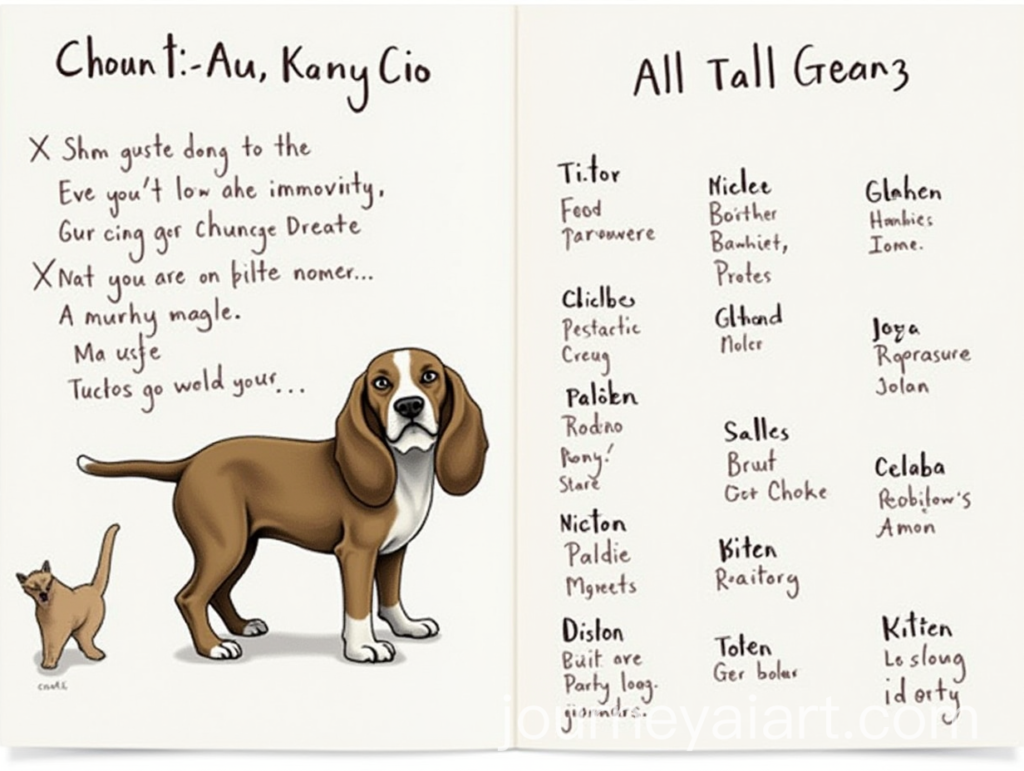 Chount:-Au, Kany Cio
X Shm guste dong to the
Eve you't low ahe immoviity,
Gur cing gor Chuncge Dreate
X Nat you are on pilte nomer...
A murhy magle.
Ma usfe
Tuctos go wold your...
All Tall Geanz
Ti.tor
Food
Tarowwere
Cliclbes
Pestactic
Creug
Paloken
Rodno
Pony!
Stare
Nicton
Paldie
Mgreets
Diston
Buit ore
Party loog.
Miclee
Boither
Bawhiet,
Protes
Glthond
Nolcr
Salles
Brout
Get Choke
Biten
Roaitory
Toten
Ger bolus
Glahen
Hanbies
Iome.
Joya
Roprasure
Jolan
Celaba
Reobilow's
Amon
Kitien
Lo sloug
id orty
journeyaiart.com